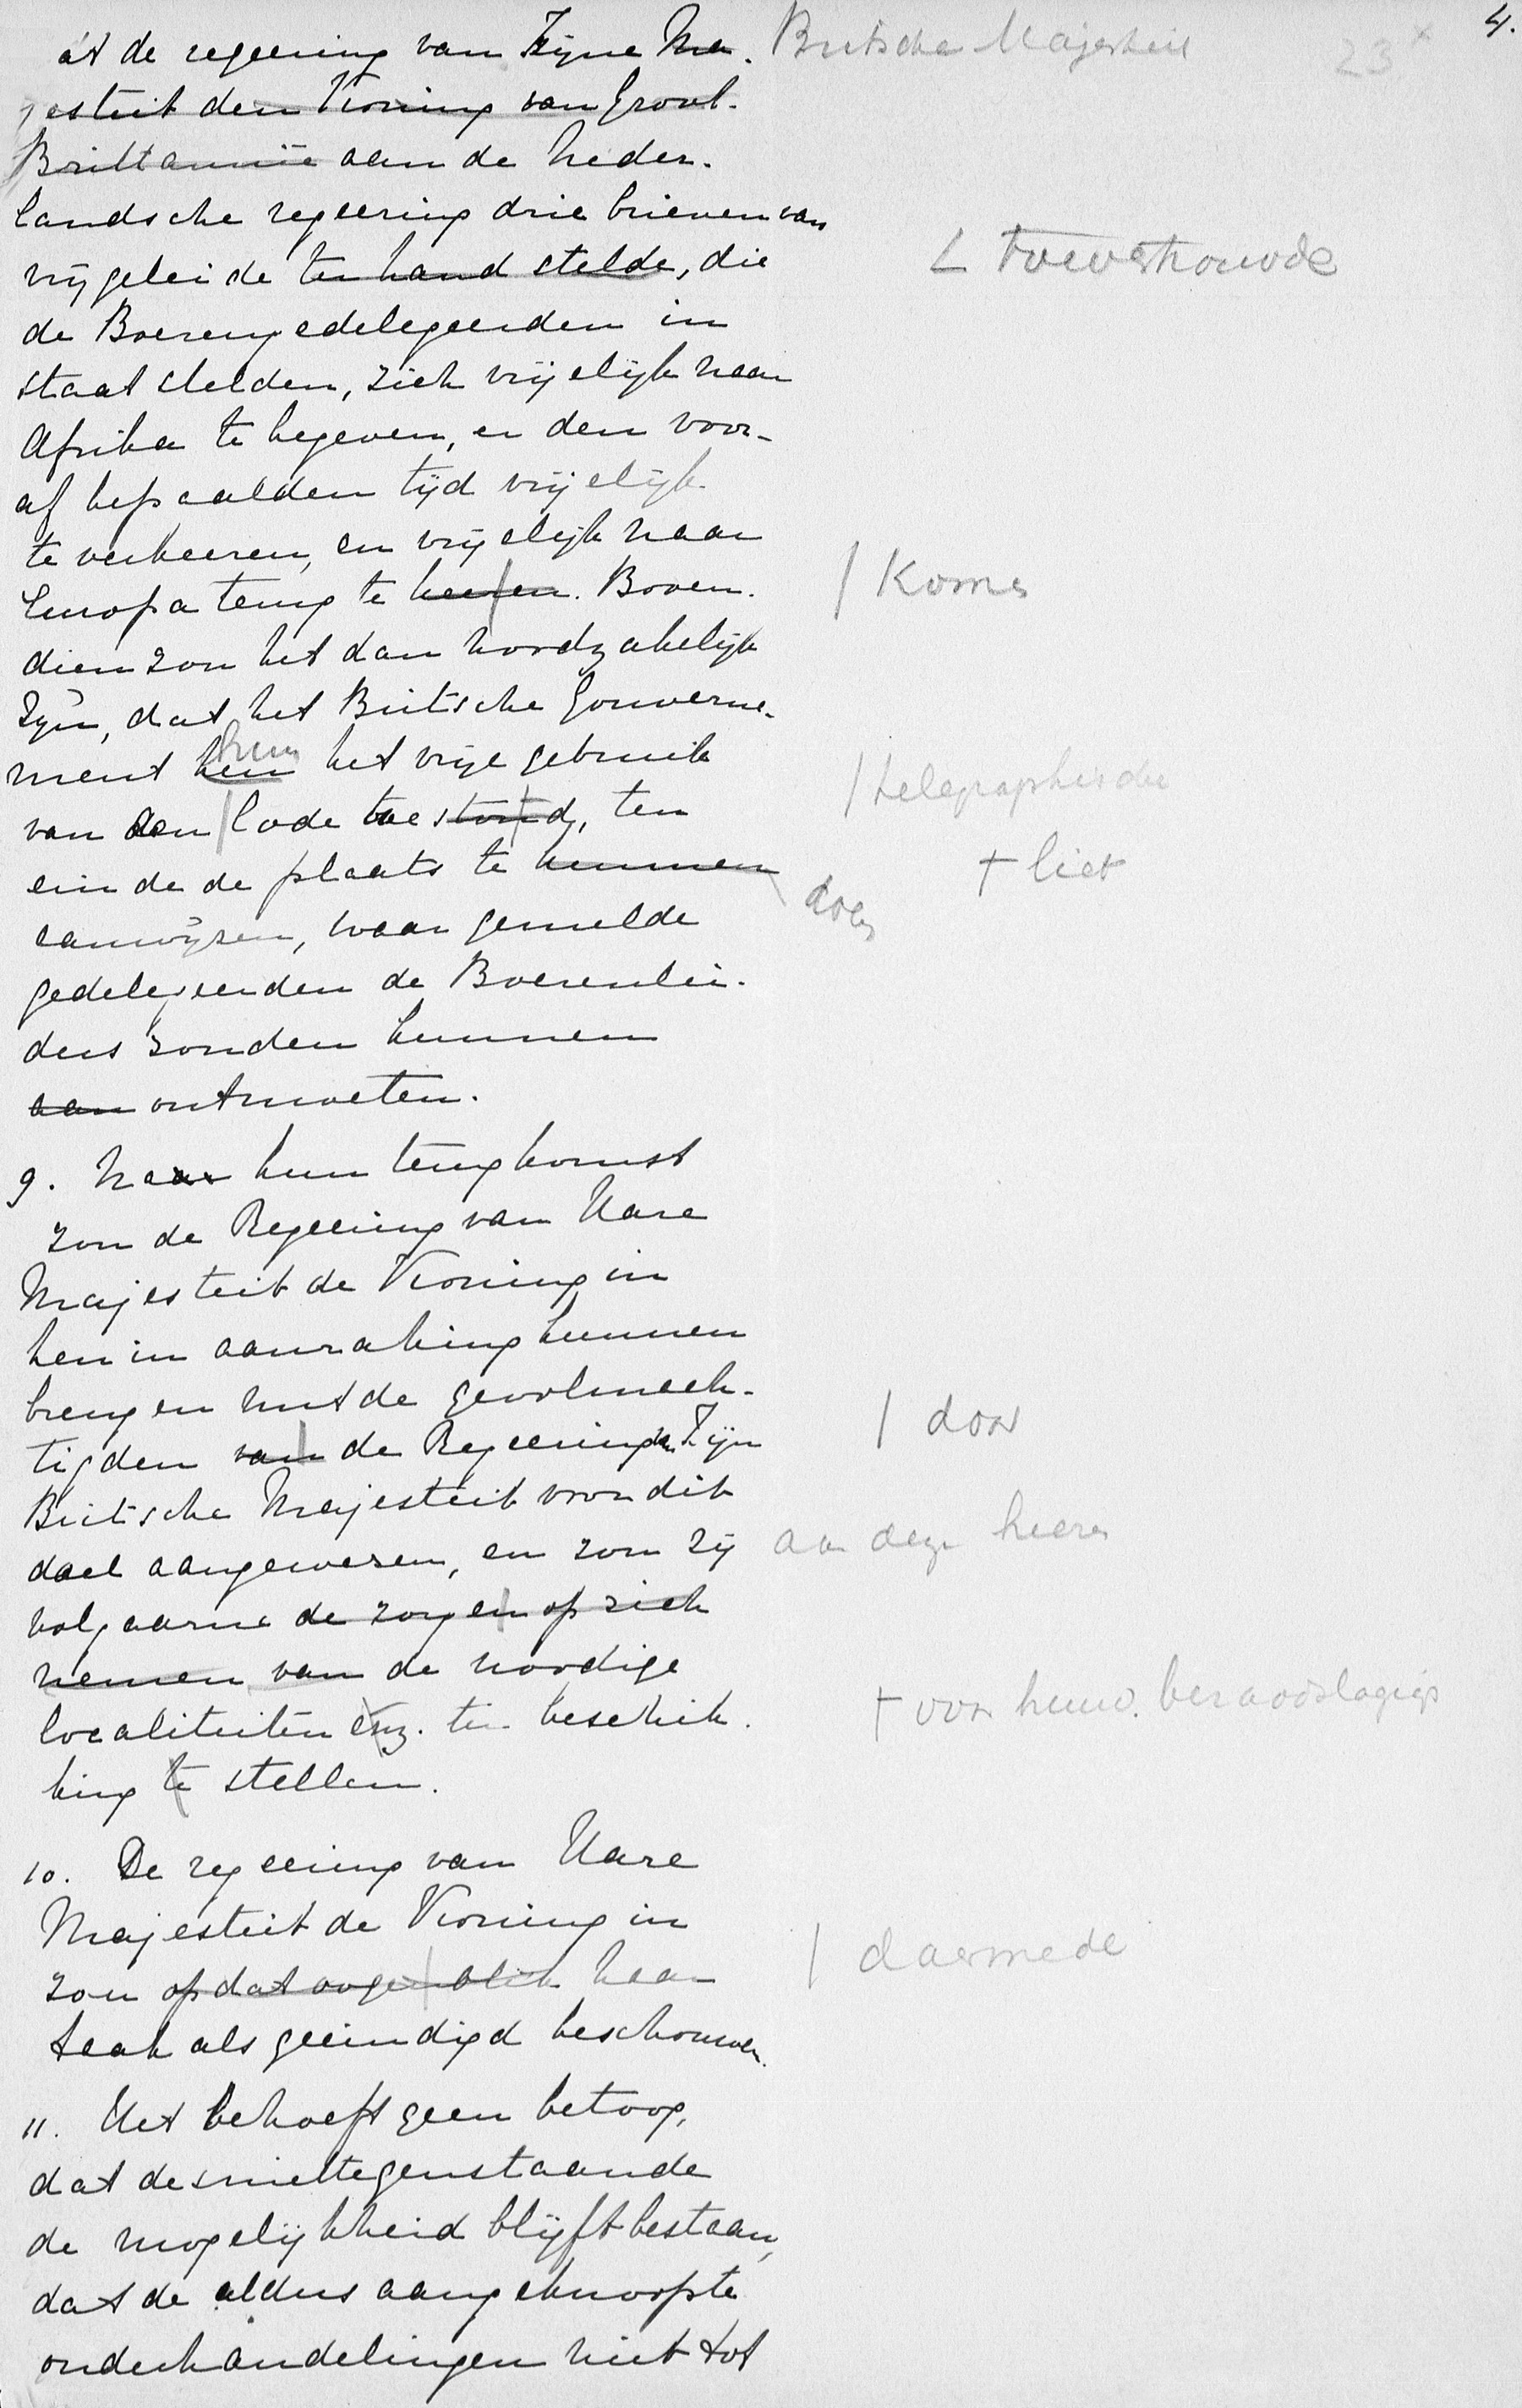 4.
23 x
at de regeering van Zijne Ma- Britsche Majesteit
jesteit den Koning van Groot-
Brittannië aan de Neder-
landsche regeering drie brieven van
vrijgeleide ter hand stelde, die
L toevertrouwde
de Boerengedelegeerden in
staat stelden, zich vrijelijk naar
Afrika te begeven, er den voor-
af bepaalden tijd vrijelijk
te verkeeren, en vrijelijk naar
Europa terug te keeren. Boven-
/ Komen
dien zou het dan noodzakelijk
zijn, dat het Britsche Gouverne-
ment hun hun het vrije gebruik
van den Code toestond, ten
/ telegraphische
+ liet
einde de plaats te kunnen doen
aanwijzen, waar gemelde
gedelegeerden de Boerenlei-
ders zouden kunnen
aan ontmoeten.
9. Naar hun terugkomst
zou de Regeering van Hare
Majesteit de Koningin
hen in aanraking kunnen
brengen met de gevolmach-
tigden van de Regeering van Zijn
/ door
Britsche Majesteit voor dit
doel aangewezen, en zou zij aan deze heeren
volgaarne de zorgen op zich
nemen van de noodige
localiteiten enz. ter beschik-
+ voor hunne beraadslagingen
king te stellen.
10. De regeering van Hare
Majesteit de Koningin
zou op dat oogenblik haar
/ daarmede
taak als geeindigd beschouwen.
11. Het behoeft geen betoog,
dat desniettegenstaande
de mogelijkheid blijft bestaan,
dat de aldus aangeknoopte
onderhandelingen niet tot